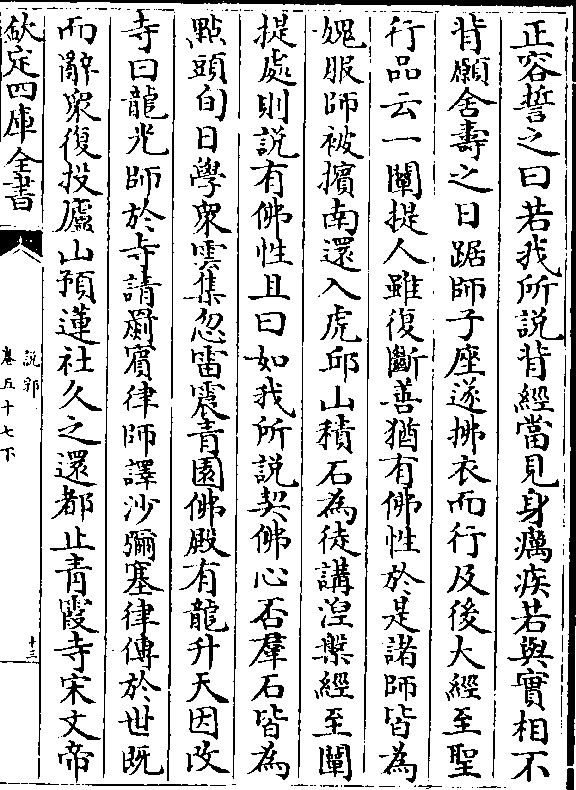 正容誓之曰若我所說背經當見身癘疾若與實相不
背願舍壽之日踞師子座遂拂衣而行及後大經至聖
行品云一闡提人雖復斷善猶有佛性於是諸師皆為
媿服師被擯南還入虎邱山積石為徒講湼槃經至闡
提處則說有佛性且曰如我所說契佛心否羣石皆為
點頭旬日學衆雲集忽雷震青園佛殿有龍升天因改
寺曰龍光師於寺請罽賓律師譯沙彌塞律傳於世既
而辭衆復投廬山預蓮社久之還都止青霞寺宋文帝
欽定四庫全書
說郛
卷五十七下
十三